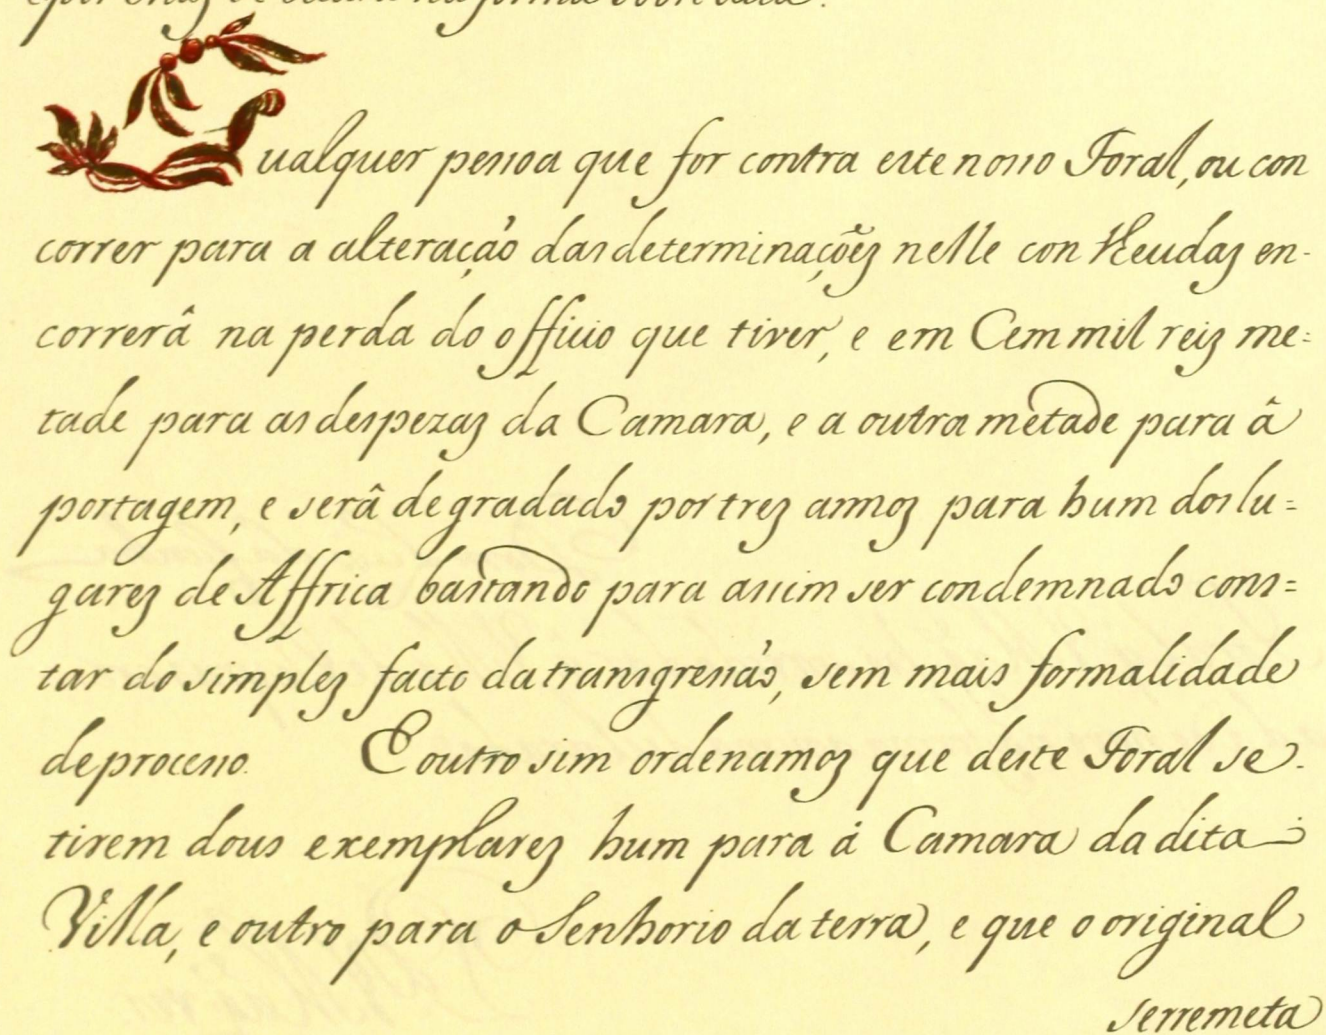 Qualquer pessoa que for contra este nosso Foral, ou con
correr para a alteração das determinações nelle con theudaz en-
correrâ na perda do officio que tiver, e em Cem mil reiz me=
tade para as despezaz da Camara, e a outra metade para â
portagem, e serâ degradado por trez annoz para hum dos lu=
garez de Affrica bastando para assim ser condemnado cons=
tar do simplez facto da transgressão, sem mais formalidade
de processo. E outro sim ordenamoz que deste Foral se-
tirem dous exemplarez hum para á Camara da dita
Villa, e outro para o Senhorio da terra, e que o original
serremeta